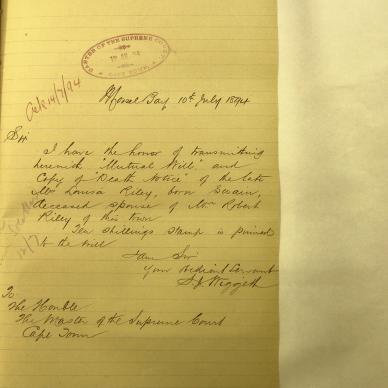 MASTER OF THE SUPREME COURT
CAPE TOWN
Ack 14/7/94
Mossel Bay 10th July 1894
Sir
I have the honor of transmitting
herewith "Mutual Will" and
Copy of "Death Notice" of the late
Mrs Louisa Riley, born Swain,
deceased spouse of Mr Robert
Riley of this town
Ten shillings stamp is pinned
to the will
I am Sir
Your Obedient Servant
To
The Honble
The Master of the Supreme Court
Cape Town